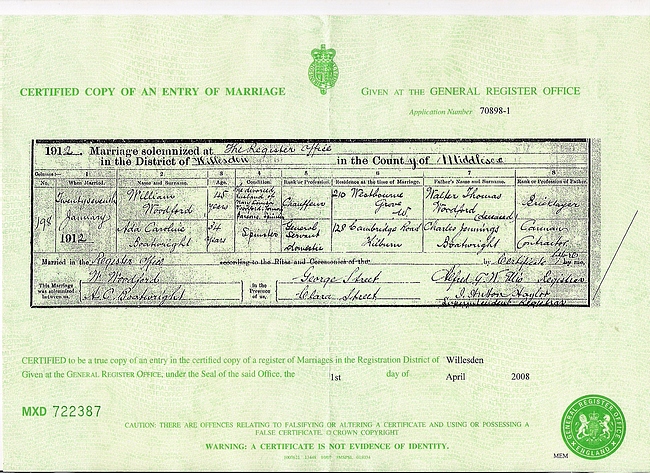 CERTIFIED COPY OF AN ENTRY OF MARRIAGE
GIVEN AT THE GENERAL REGISTER OFFICE
Application Number 70898-1
1912. Marriage solemnized at The Register Office
in the District of Willesden in the County of Middlesex
Columns:— 1 2 3 4 5 6 7 8
No. When Married. Name and Surname. Age. Condition. Rank or Profession. Residence at the time of Marriage. Father's Name and Surname. Rank or Profession of Father.
198 Twentyseventh January 1912
William Woodford 45 years The divorced husband of Woodford, formerly Parsons, Spinster Chauffeur 210 Westbourne Grove W. Walter Thomas Woodford (deceased) Bricklayer
Ada Caroline Boatwright 34 years Spinster General Servant Domestic 128 Cambridge Road Kilburn Charles Jennings Boatwright Carman Contractor
Married in the Register Office according to the Rites and Ceremonies of the by Certificate before by me,
This Marriage was solemnized between us,
W. Woodford
A. C. Boatwright
In the Presence of us,
George Street
Clara Street
Alfred G. W. Registrar
Superintendent Registrar
CERTIFIED to be a true copy of an entry in the certified copy of a register of Marriages in the Registration District of Willesden
Given at the GENERAL REGISTER OFFICE, under the Seal of the said Office, the 1st day of April 2008
MXD 722387
CAUTION: THERE ARE OFFENCES RELATING TO FALSIFYING OR ALTERING A CERTIFICATE AND USING OR POSSESSING A
FALSE CERTIFICATE. © CROWN COPYRIGHT
WARNING: A CERTIFICATE IS NOT EVIDENCE OF IDENTITY.
GENERAL REGISTER OFFICE
ENGLAND
MEM